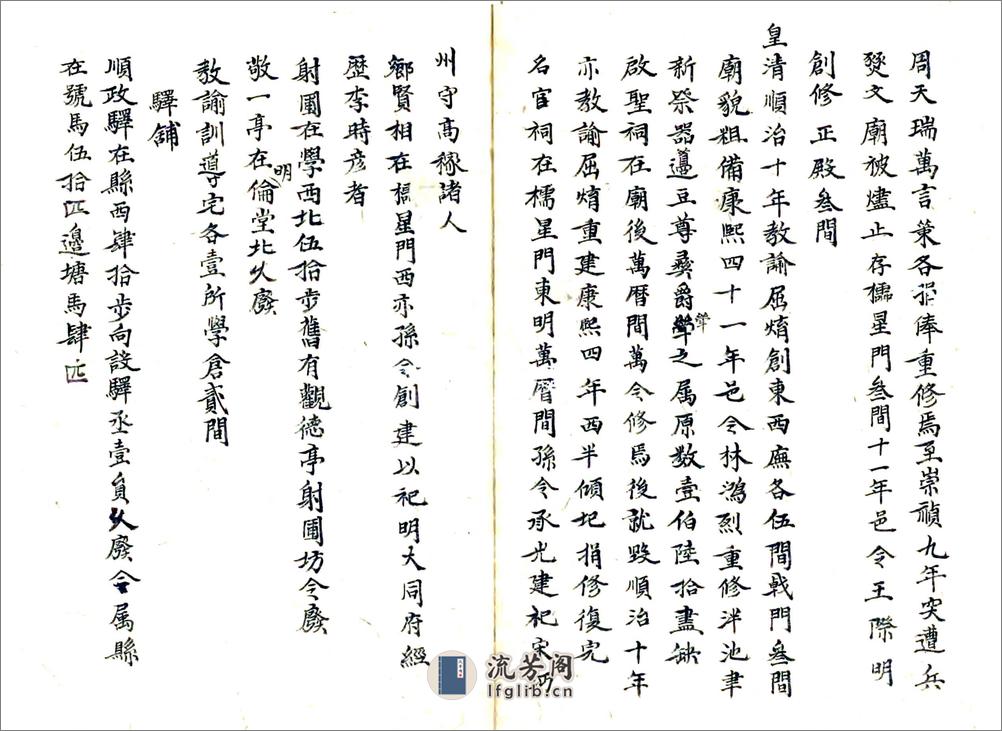 周天瑞萬言策各捐俸重修焉至崇禎九年突遭兵
燹文廟被燼止存櫺星門叁間十一年邑令王際明
創修正殿叁間
皇清順治十年教諭屈㷌創東西廡各伍間戟門叁間
廟貌粗備康熙四十一年邑令林鴻烈重修泮池聿
新祭器籩豆尊彝爵斝之属原数壹伯陸拾盡缺
啟聖祠在廟後萬曆間萬令修焉後就毀順治十年
亦教諭屈㷌重建康熙四年西半傾圮捐修復完
名宦祠在櫺星門東明萬曆間孫令承光建祀宋沔
州守高稼諸人
鄉賢相在櫺星門西亦孫令創建以祀明大同府經
歷李時彦者
射圃在學西北伍拾步舊有觀德亭射圃坊令廢
敬一亭在明倫堂北乆廢
教諭訓導宅各壹所學倉貳間
驛舖
順政驛在縣西肆拾步向設驛丞壹負乆廢令属縣
在號馬伍拾匹邊塘馬肆匹
流芳阁
lfglib.cn